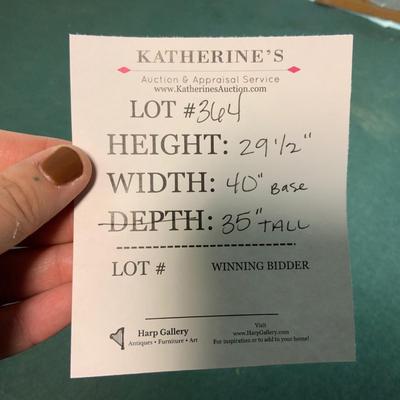 KATHERINE'S
Auction & Appraisal Service
www.KatherinesAuction.com
LOT #364
HEIGHT: 29 1/2"
WIDTH: 40" Base
DEPTH: 35" TALL
LOT # WINNING BIDDER
Harp Gallery
Antiques • Furniture • Art
Visit
www.HarpGallery.com
For inspiration or to add to your home!